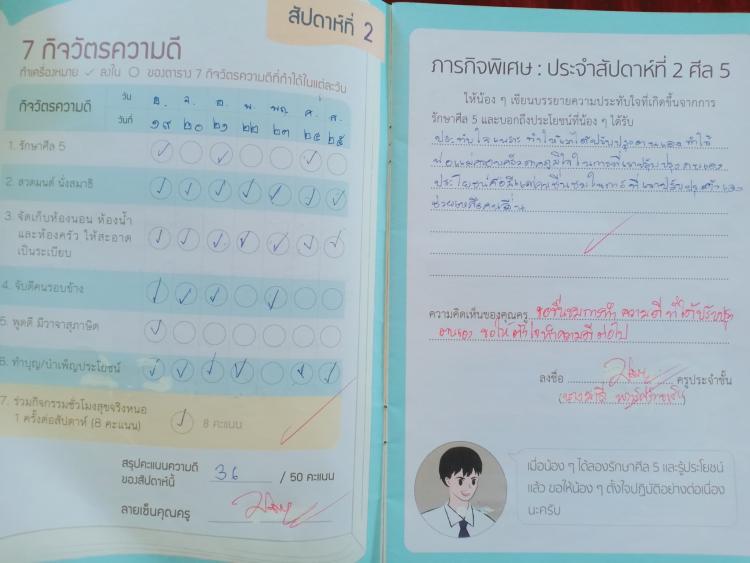 สัปดาห์ที่ 2
7 กิจวัตรความดี
ทำเครื่องหมาย ✓ ลงใน ○ ของตาราง 7 กิจวัตรความดีที่ทำได้ในแต่ละวัน
กิจวัตรความดี
วัน อ. จ. อ. พ. พฤ. ศ. ส.
วันที่ ๑๙ ๒๐ ๒๑ ๒๒ ๒๓ ๒๔ ๒๕
1. รักษาศีล 5
2. สวดมนต์ นั่งสมาธิ
3. จัดเก็บห้องนอน ห้องน้ำ
และห้องครัว ให้สะอาด
เป็นระเบียบ
4. จับดีคนรอบข้าง
5. พูดดี มีวาจาสุภาษิต
6. ทำบุญ/บำเพ็ญประโยชน์
7. ร่วมกิจกรรมชั่วโมงสุขจริงหนอ
1 ครั้งต่อสัปดาห์ (8 คะแนน)
8 คะแนน
สรุปคะแนนความดี
ของสัปดาห์นี้ 36 / 50 คะแนน
ลายเซ็นคุณครู
ภารกิจพิเศษ : ประจำสัปดาห์ที่ 2 ศีล 5
ให้น้อง ๆ เขียนบรรยายความประทับใจที่เกิดขึ้นจากการ
รักษาศีล 5 และบอกถึงประโยชน์ที่น้อง ๆ ได้รับ
ประทับใจเพราะ ทำให้เราได้ปรับปรุงตนเอง ทำให้
ประโยชน์คือ
ช่วยเหลือคนอื่น
ความคิดเห็นของคุณครู ขอชื่นชมการทำความดี ที่ได้ปรับปรุง
ตนเอง ขอให้ตั้งใจทำความดีต่อไป
ลงชื่อ ครูประจำชั้น
เมื่อน้อง ๆ ได้ลองรักษาศีล 5 และรู้ประโยชน์
แล้ว ขอให้น้อง ๆ ตั้งใจปฏิบัติอย่างต่อเนื่อง
นะครับ